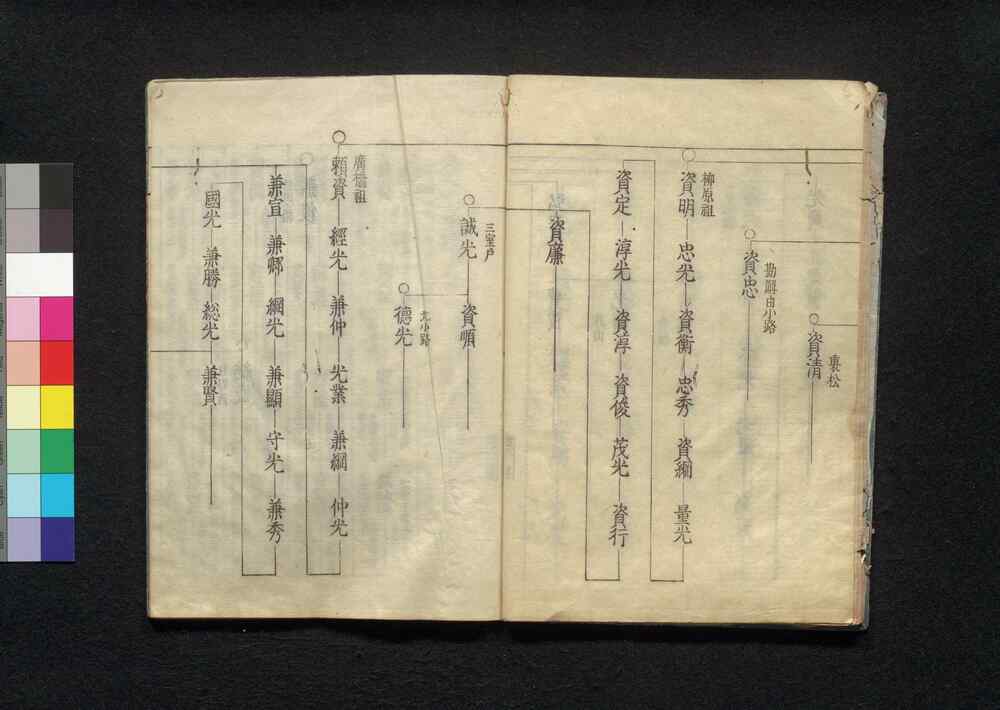 裏松
資清
勘解由小路
資忠
柳原祖
資明 忠光 資衡 忠秀 資綱 量光
資定 淳光 資淳 資俊 茂光 資行
資廉
三室戸
誠光 資順
北小路
德光
廣橋祖
頼資 經光 兼仲 光業 兼綱 仲光
兼宣 兼郷 綱光 兼顯 守光 兼秀
國光 兼勝 総光 兼賢